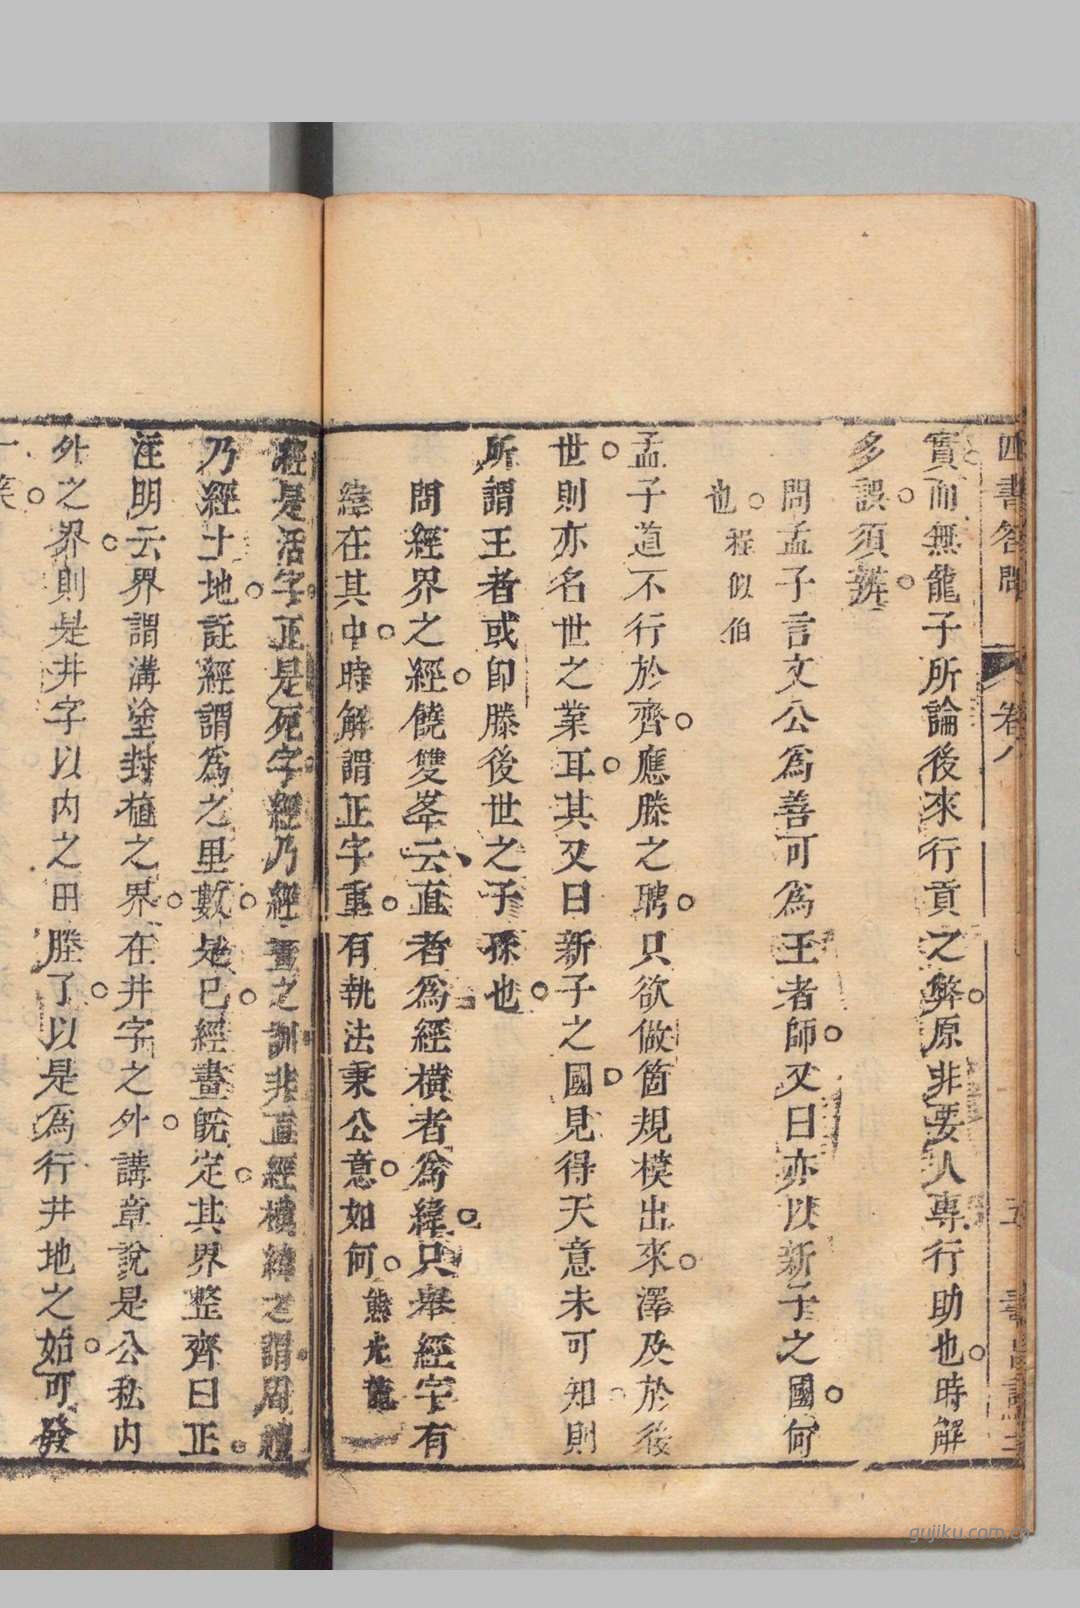 四書答問 卷八 五
實而無龍子所論後來行貢之弊原非要人專行助也時解
多誤須辨
問孟子言文公為善可為王者師又曰亦以新子之國何
也 程似伯
孟子道不行於齊應滕之聘只欲做箇規模出來澤及於後
世則亦名世之業耳其又曰新子之國見得天意未可知則
所謂王者或卽滕後世之子孫也
問經界之經饒雙峯云直者爲經橫者爲緯只舉經字有
緯在其中時解謂正字重有執法秉公意如何 熊光龍
經是活字正是死字經乃經畫之訓非直經橫緯之謂周禮
乃經土地註經謂爲之里數是已經畫既定其界整齊曰正
注明云界謂溝塗封植之界在井字之外講章說是公私內
外之界則是井字以內之田塍了以是爲行井地之始可發
一笑
gujiku.com.cn